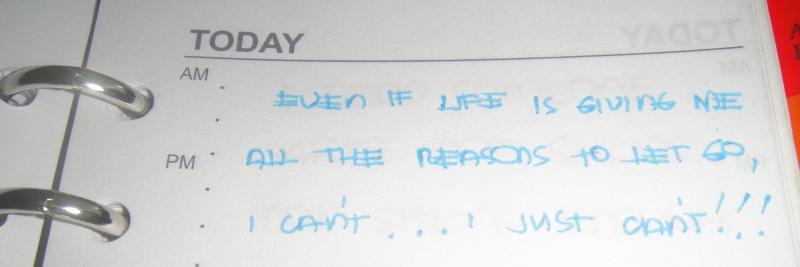 TODAY
AM
EVEN IF LIFE IS GIVING ME
PM
ALL THE REASONS TO LET GO,
I CAN'T . . . I JUST CAN'T!!!